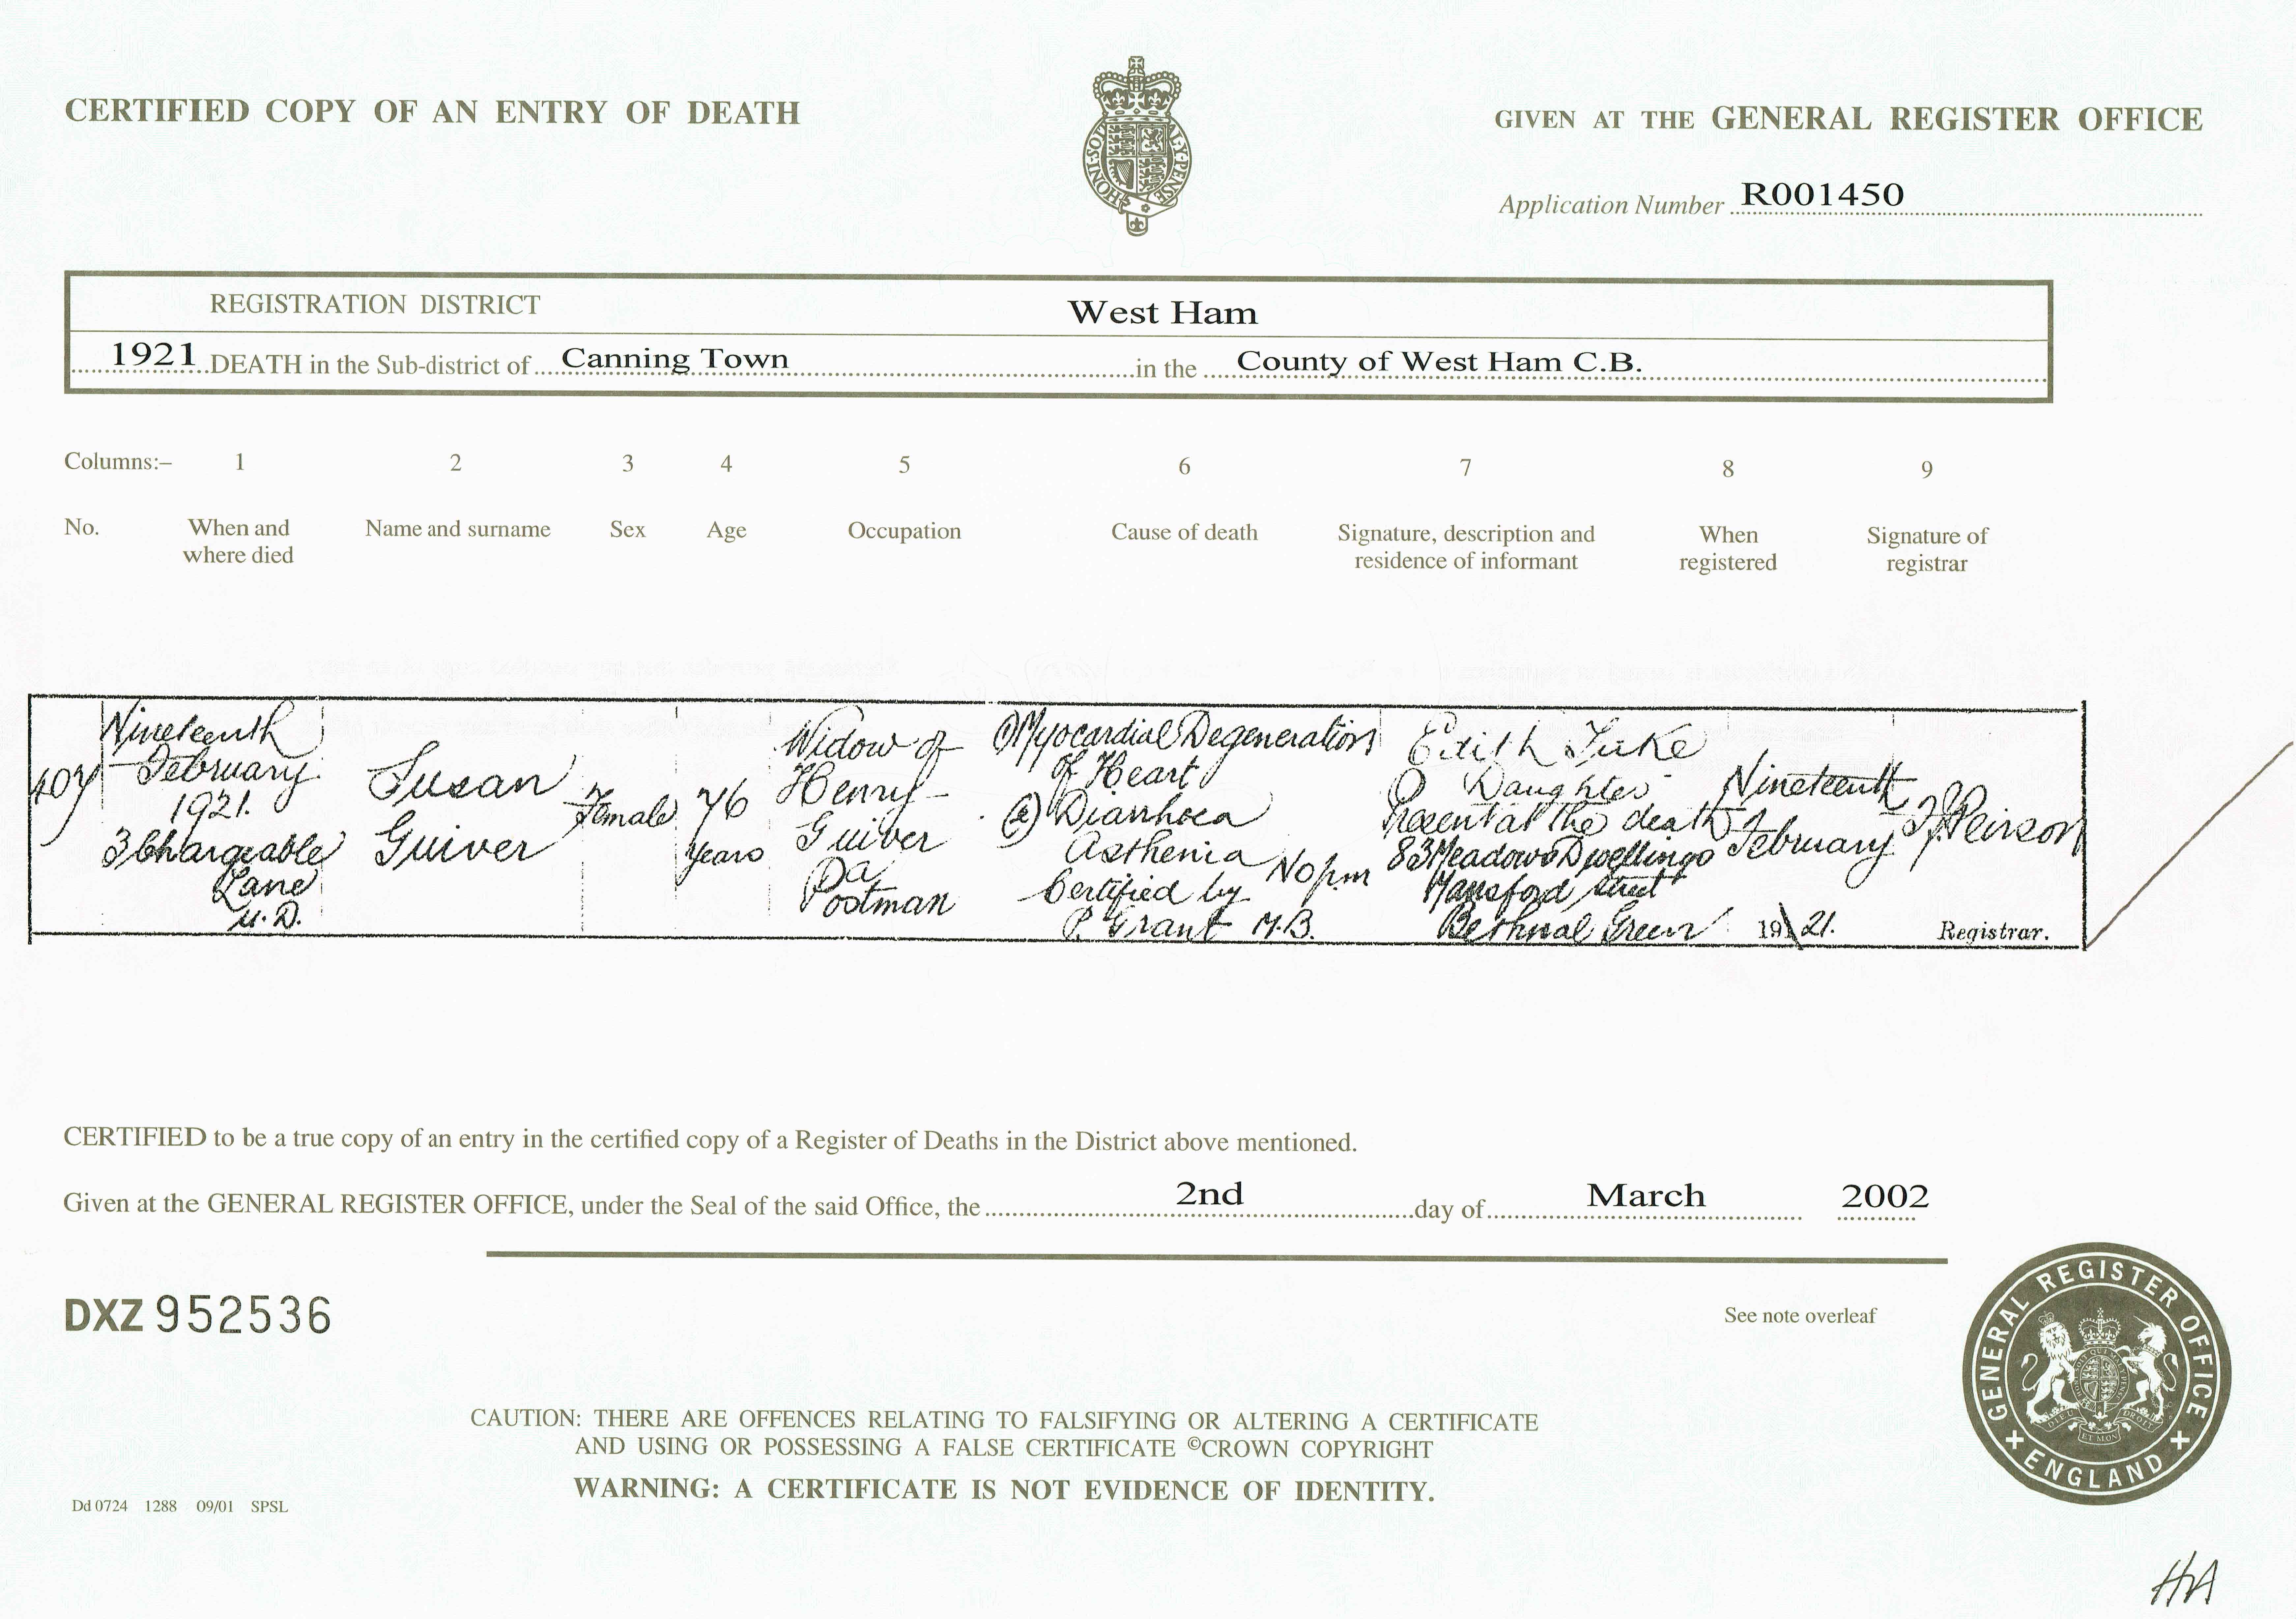 CERTIFIED COPY OF AN ENTRY OF DEATH
HONI·SOI Y·PENSE
GIVEN AT THE GENERAL REGISTER OFFICE
Application Number R001450
REGISTRATION DISTRICT West Ham
1921 DEATH in the Sub-district of Canning Town in the County of West Ham C.B.
Columns:– 1 2 3 4 5 6 7 8 9
No. When and where died Name and surname Sex Age Occupation Cause of death Signature, description and residence of informant When registered Signature of registrar
407
Nineteenth
February
1921.
3 Chargeable
Lane
U.D.
Susan
Guiver
Female
76
years
Widow of
Henry
Guiver
Postman
(1) Myocardial Degeneration
of Heart
(2) Diarrhoea
Asthenia
No p m
Certified by
P. Grant M.B.
Edith Tuke
Daughter
Present at the death
83 Meadows Dwellings
Mansford Street
Bethnal Green
Nineteenth
February
1921.
Peirson
Registrar.
CERTIFIED to be a true copy of an entry in the certified copy of a Register of Deaths in the District above mentioned.
Given at the GENERAL REGISTER OFFICE, under the Seal of the said Office, the 2nd day of March 2002
DXZ 952536
See note overleaf
GENERAL REGISTER OFFICE
ENGLAND
CAUTION: THERE ARE OFFENCES RELATING TO FALSIFYING OR ALTERING A CERTIFICATE
AND USING OR POSSESSING A FALSE CERTIFICATE ©CROWN COPYRIGHT
WARNING: A CERTIFICATE IS NOT EVIDENCE OF IDENTITY.
Dd 0724 1288 09/01 SPSL